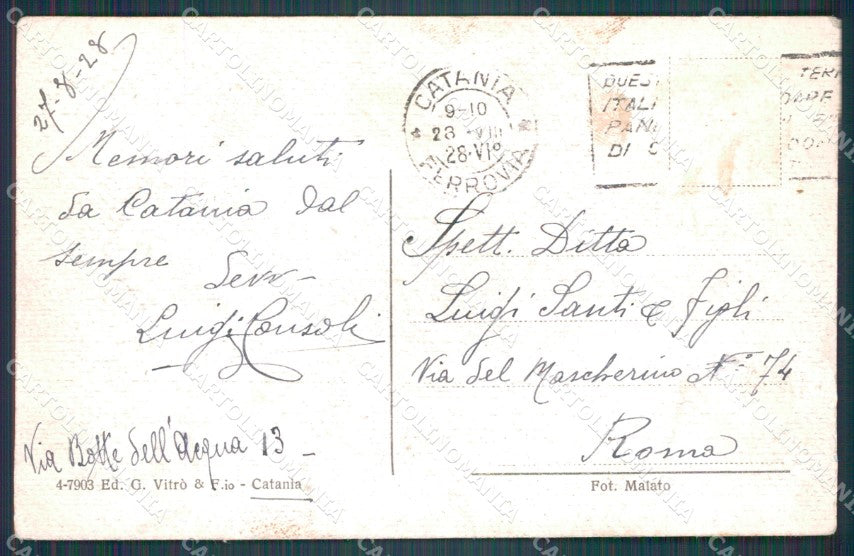 27-8-28
Memori saluti
da Catania dal
sempre
Dev
Luigi Consoli
Via Botte dell'Acqua 13
4-7903 Ed. G. Vitrò & F.io - Catania
CATANIA
9-10
28 VIII
28·VI
FERROVIA
ITALI
PAN
DI
Spett. Ditta
Luigi Santi e Figli
Via del Mascherino N° 74
Roma
Fot. Malato
CARTOLINOMANIA